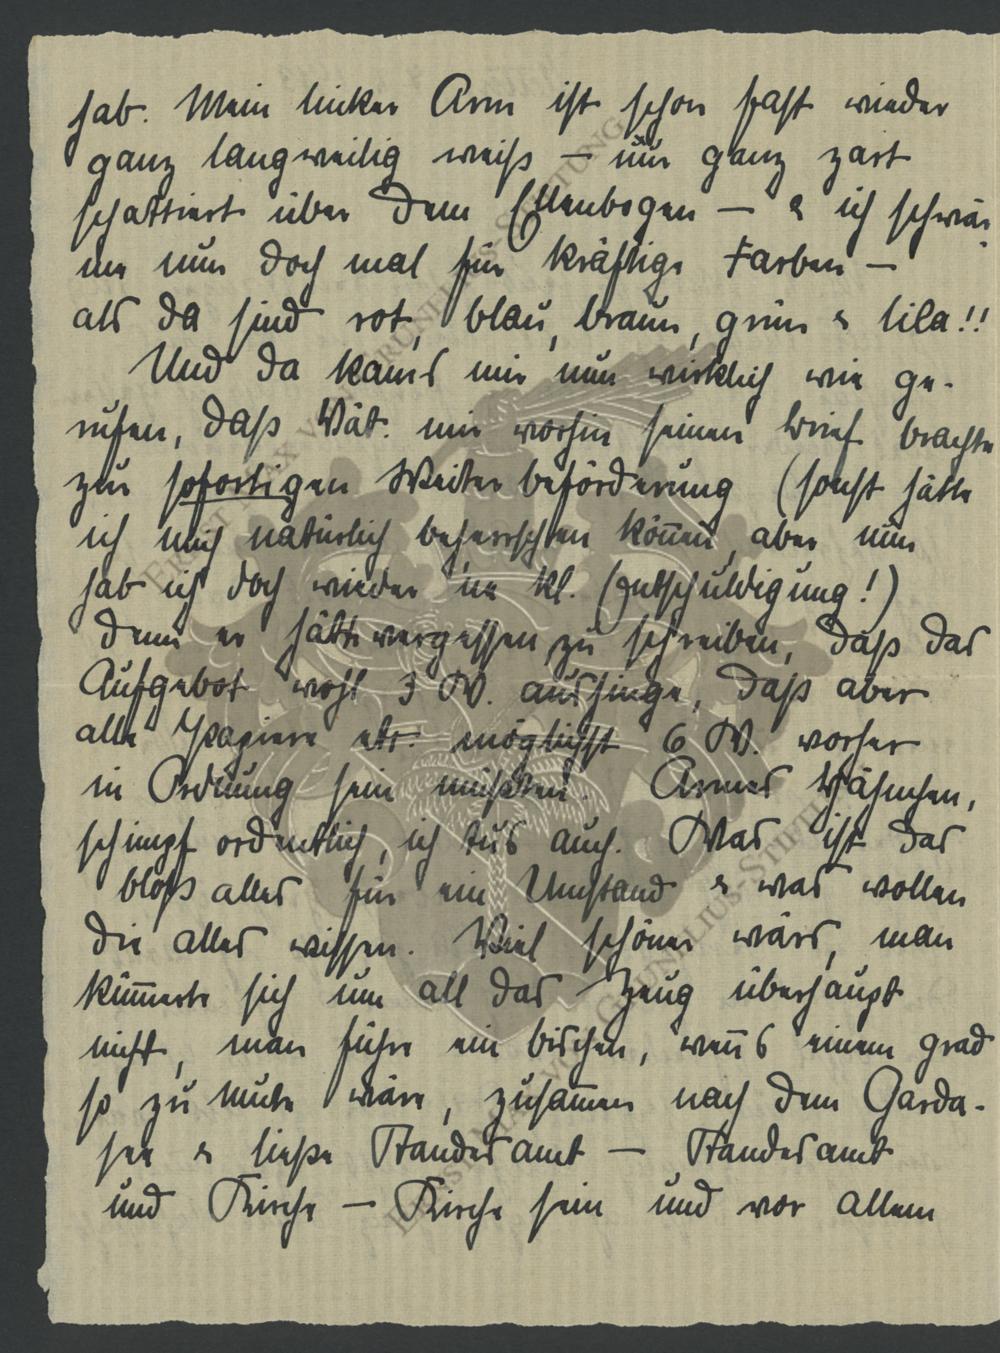 hab. Mein linker Arm ist schon fast wieder
ganz langweilig weiß – nur ganz zart
schattiert über dem Ellenbogen – & ich schwär-
me nun doch mal für kräftige Farben –
als da sind rot, blau, braun, grün & lila!!
Und da kams mir nun wirklich wie ge-
rufen, daß Vät. mir vorhin seinen Brief brachte
zur sofortigen Weiterbeförderung (sonst hätte
ich mich natürlich beherrschen können, aber nun
hab ich doch wieder 'ne kl. Entschuldigung!)
denn er hätte vergessen zu schreiben, daß das
Aufgebot wohl 3 W. aushinge, daß aber
alle Papiere etc. möglichst 6 W. vorher
in Ordnung sein müßten. Armes
schimpf ordentlich, ich tus auch. Was ist das
bloß alles für ein Umstand & was wollen
die alles wissen. Viel schöner wärs, man
kümmerte sich um all das Zeug überhaupt
nicht, man führe ein bischen, wenns einem grad
so zu Mute wäre, zusammen nach dem Garda-
see & ließe Standesamt – Standesamt
und Kirche – Kirche sein und vor allem